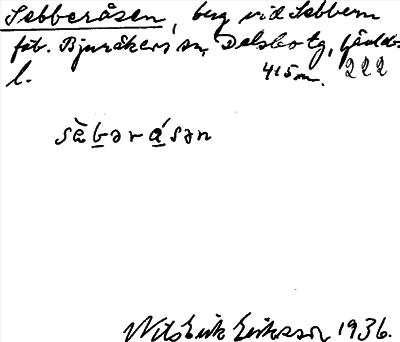 Sebberåsen, berg vid Sebbern
fäb. Bjuråkers sn, Delsbo tg, Gävleb.
l. 415 m. 222
sàbərásən
Nils Erik Eriksson 1936.